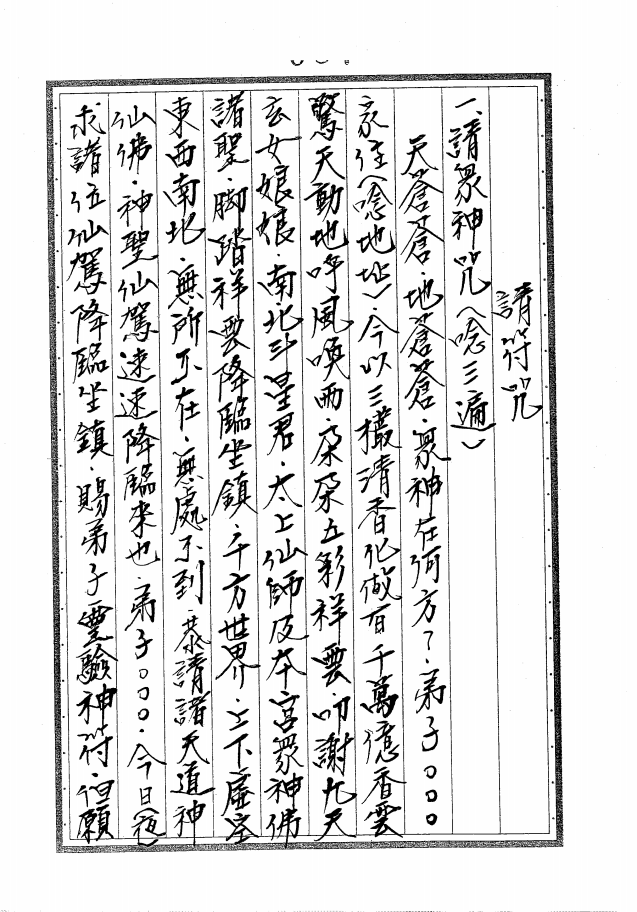 請符咒
一、請眾神咒(唸三遍)
天蒼蒼．地蒼蒼．眾神在何方?．弟子○○○
家住(唸地址)．今以三欉清香化做百千萬億香雲
驚天動地呼風喚雨．朵朵五彩祥雲．叩謝九天
玄女娘娘．南北斗星君．太上仙師及本宮眾神佛
諸聖．脚踏祥雲降臨坐鎮．十方世界．上下虛空
東西南北．無所不在．無處不到．恭請諸天道神
仙佛．神聖仙駕速速降臨來也．弟子○○○．今日(夜)
求諸位仙駕降臨坐鎮．賜弟子靈驗神符．但願